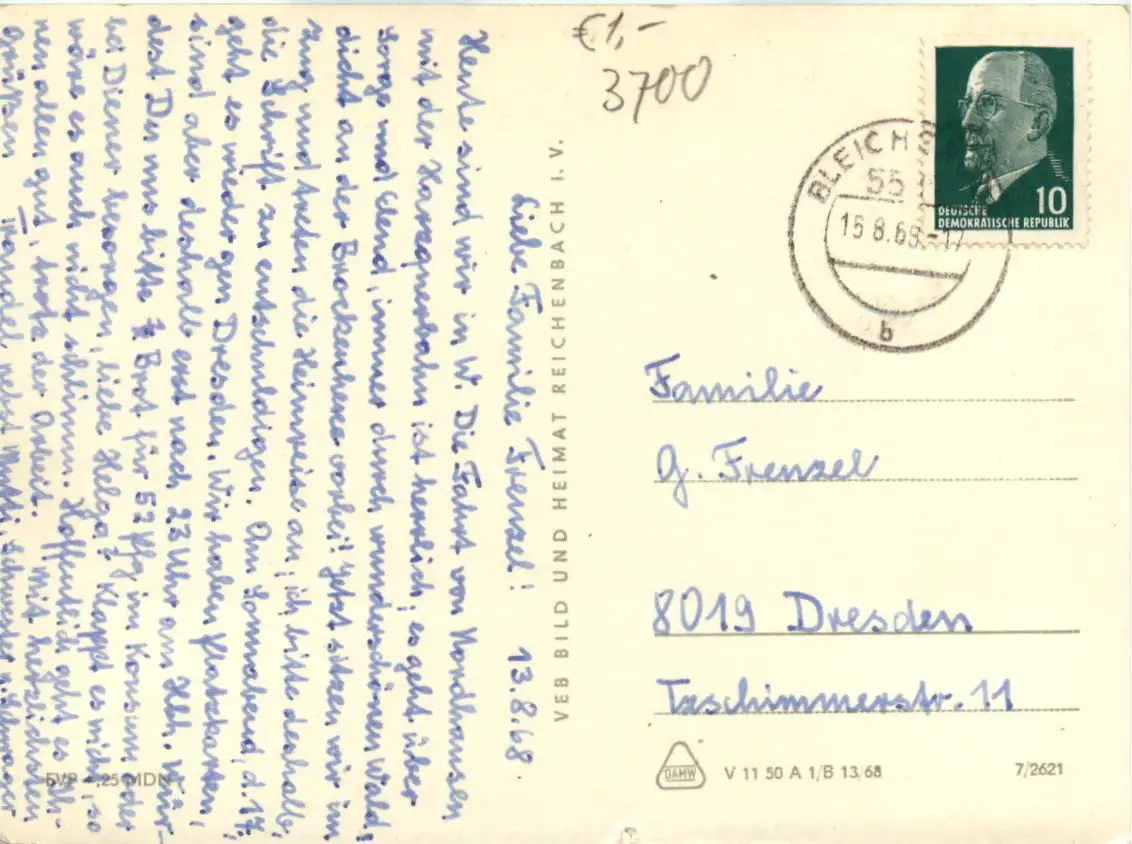 €1,-
3700
Liebe Familie Frenzel! 13.8.68
Heute sind wir in W. Die Fahrt von Nordhausen
mit der Harzquerbahn ist herrlich, es geht über
Sorge und Elend, immer durch wunderschönen Wald
dicht an der Brockenhexe vorbei! Jetzt sitzen wir im
Zug und treten die Heimreise an, ich bitte deshalb,
die Schrift zu entschuldigen. Am Sonnabend, d. 17.,
geht es wieder gen Dresden. Wir haben Platzkarten,
sind aber deshalb erst nach 23 Uhr am Hbf. Wür-
dest Du uns bitte ½ Brot für 52 Pfg im Konsum oder
bei Diener besorgen, liebe Helga? Klappt es nicht, so
wäre es auch nicht schlimm. Hoffentlich geht es Ih-
nen allen gut, trotz der Arbeit. Mit herzlichsten
Grüßen nebst Mutti, Schwester u. Schwager
EVP -,25 MDN
VEB BILD UND HEIMAT REICHENBACH I. V.
DEUTSCHE
DEMOKRATISCHE REPUBLIK
10
BLEICH
55
15.8.68.-17
b
Familie
G. Frenzel
8019 Dresden
Taschimmerstr. 11
DAMW
V 11 50 A 1/B 13/68
7/2621